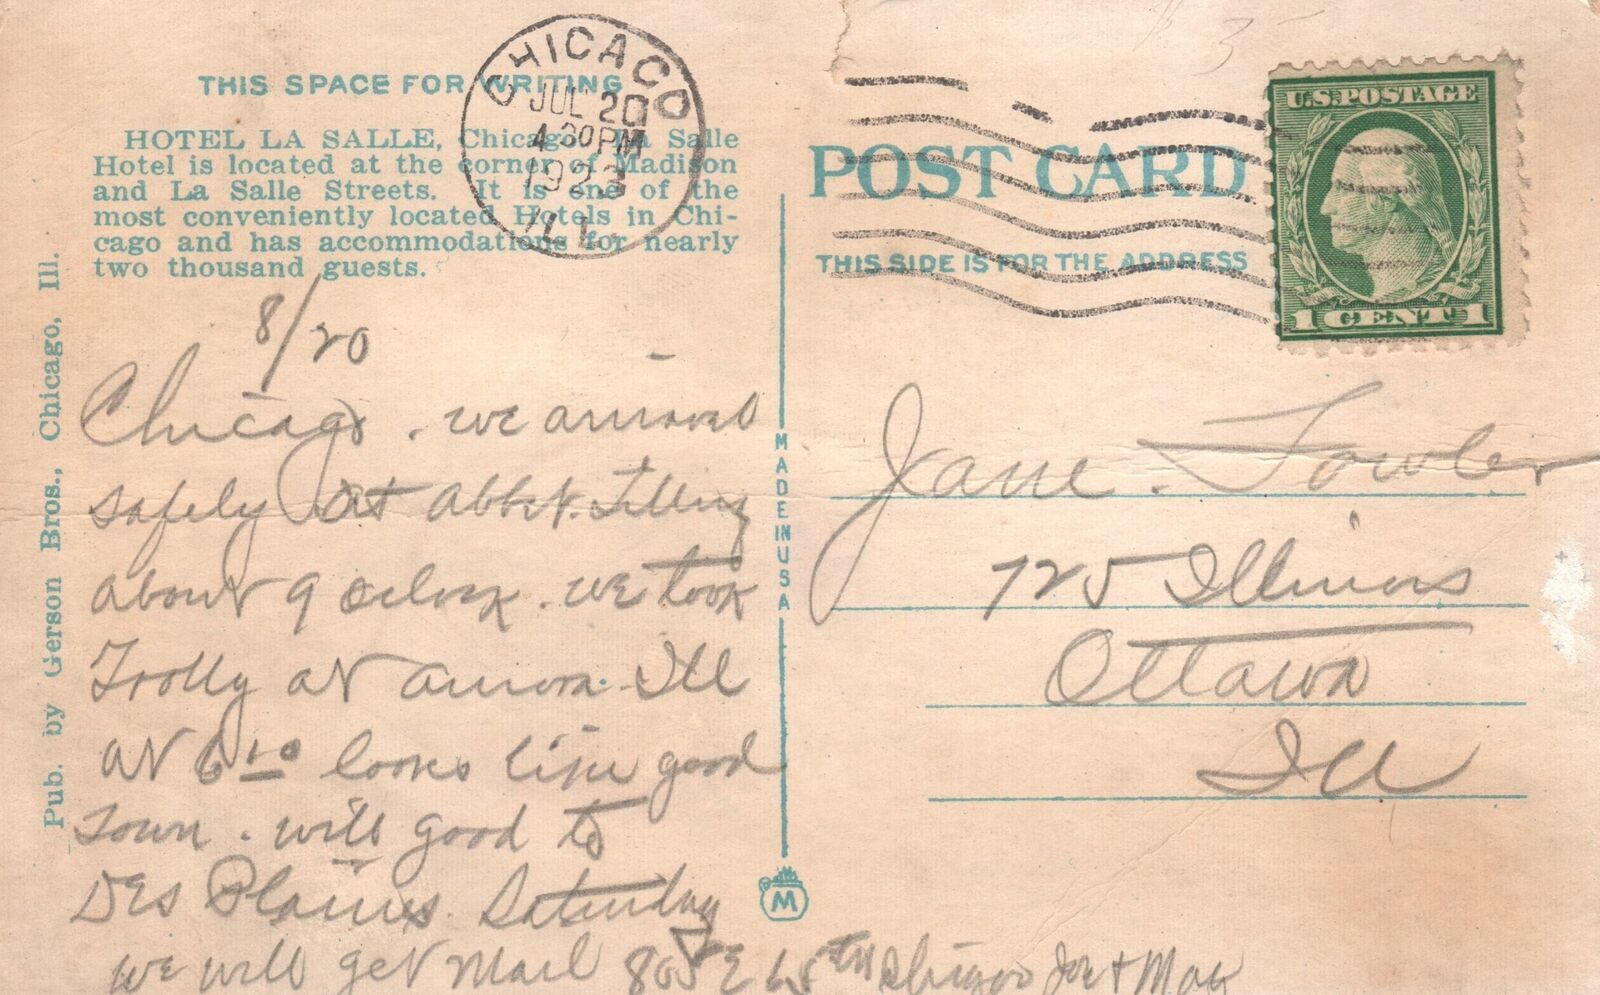 THIS SPACE FOR WRITING
HOTEL LA SALLE, Chicago. La Salle
Hotel is located at the corner of Madison
and La Salle Streets. It is one of the
most conveniently located Hotels in Chi-
cago and has accommodations for nearly
two thousand guests.
CHICAGO
JUL 20
4 30 PM
1923
ILL.
8/20
Chicago. we arrived
safely at
about 9 oclock. we took
Trolly at Aurora. Ill
at 6 10 looks like good
Town. will good to
Des Plaines. Saturday
we will get Mail 805 E 65 TH Joe + May
Pub. by Gerson Bros., Chicago, Ill.
MADE IN USA
M
POST CARD
THIS SIDE IS FOR THE ADDRESS
3
U.S. POSTAGE
1 CENT 1
Jane. Fowler
725 Illinois
Ottawa
Ill